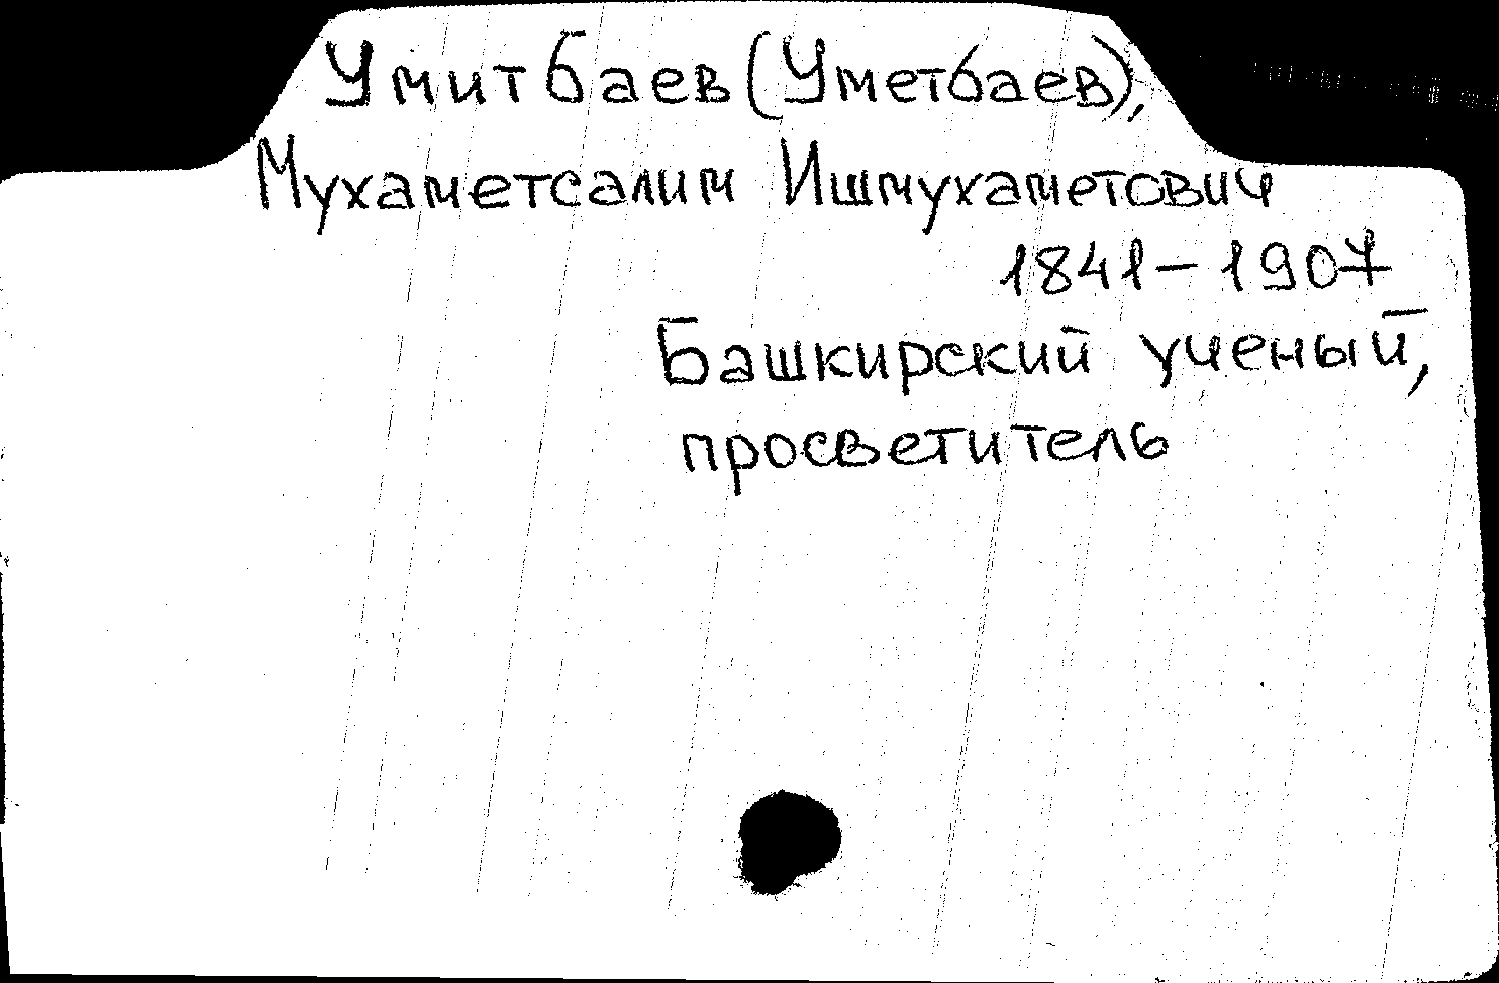 Умитбаев (Уметбаев),
Мухаметсалим Ишмухаметович
1841 – 1907
Башкирский ученый,
просветитель